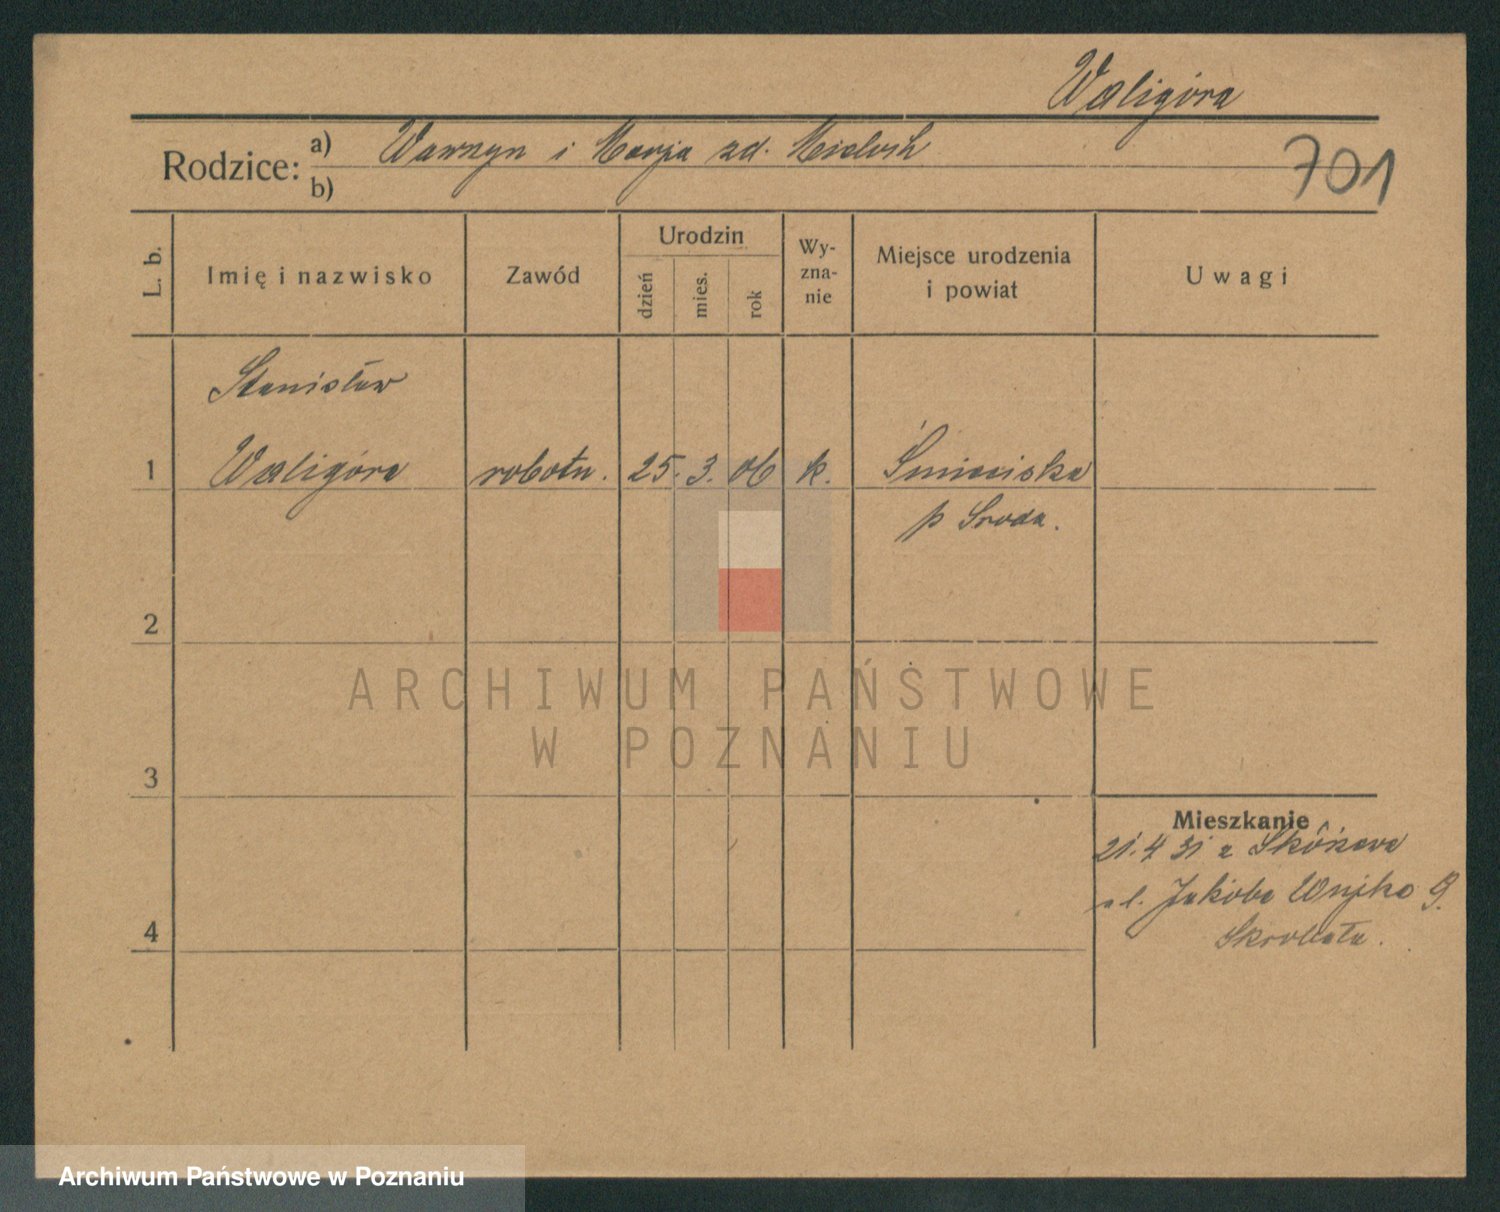 Waligóra
701
Rodzice: a) Wawrzyn i Marja zd.
b)
L. b.
Imię i nazwisko
Zawód
Urodzin
dzień
mies.
rok
Wy-
zna-
nie
Miejsce urodzenia
i powiat
Uwagi
Stanisław
1 Waligóra robotn. 25. 3. 06 k. Śnieciska
p Sroda.
2
ARCHIWUM PAŃSTWOWE
W POZNANIU
3
Mieszkanie
21.4 31 z
ul. Jakóba Wujka 9.
4
Archiwum Państwowe w Poznaniu